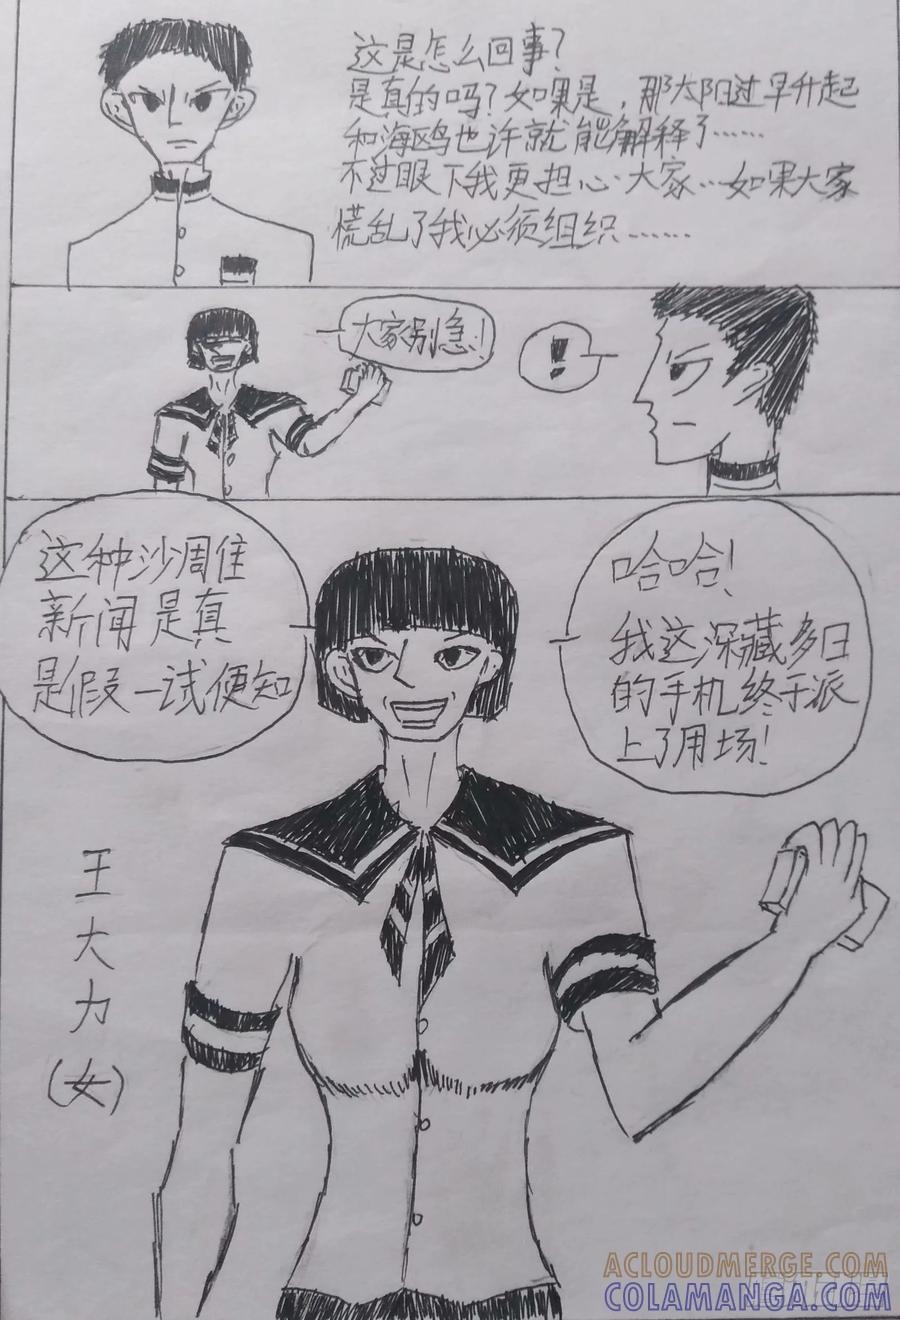 这是怎么回事?
是真的吗?如果是,那太阳过早升起
和海鸥也许就能解释了……
不过眼下我更担心大家…如果大家
慌乱了我必须组织……
大家别急!
!
这种沙周住
新闻是真
是假一试便知
哈哈!
我这深藏多日
的手机终于派
上了用场!
王
大
力
(女)
ACLOUDMERGE.COM
COLAMANGA.COM